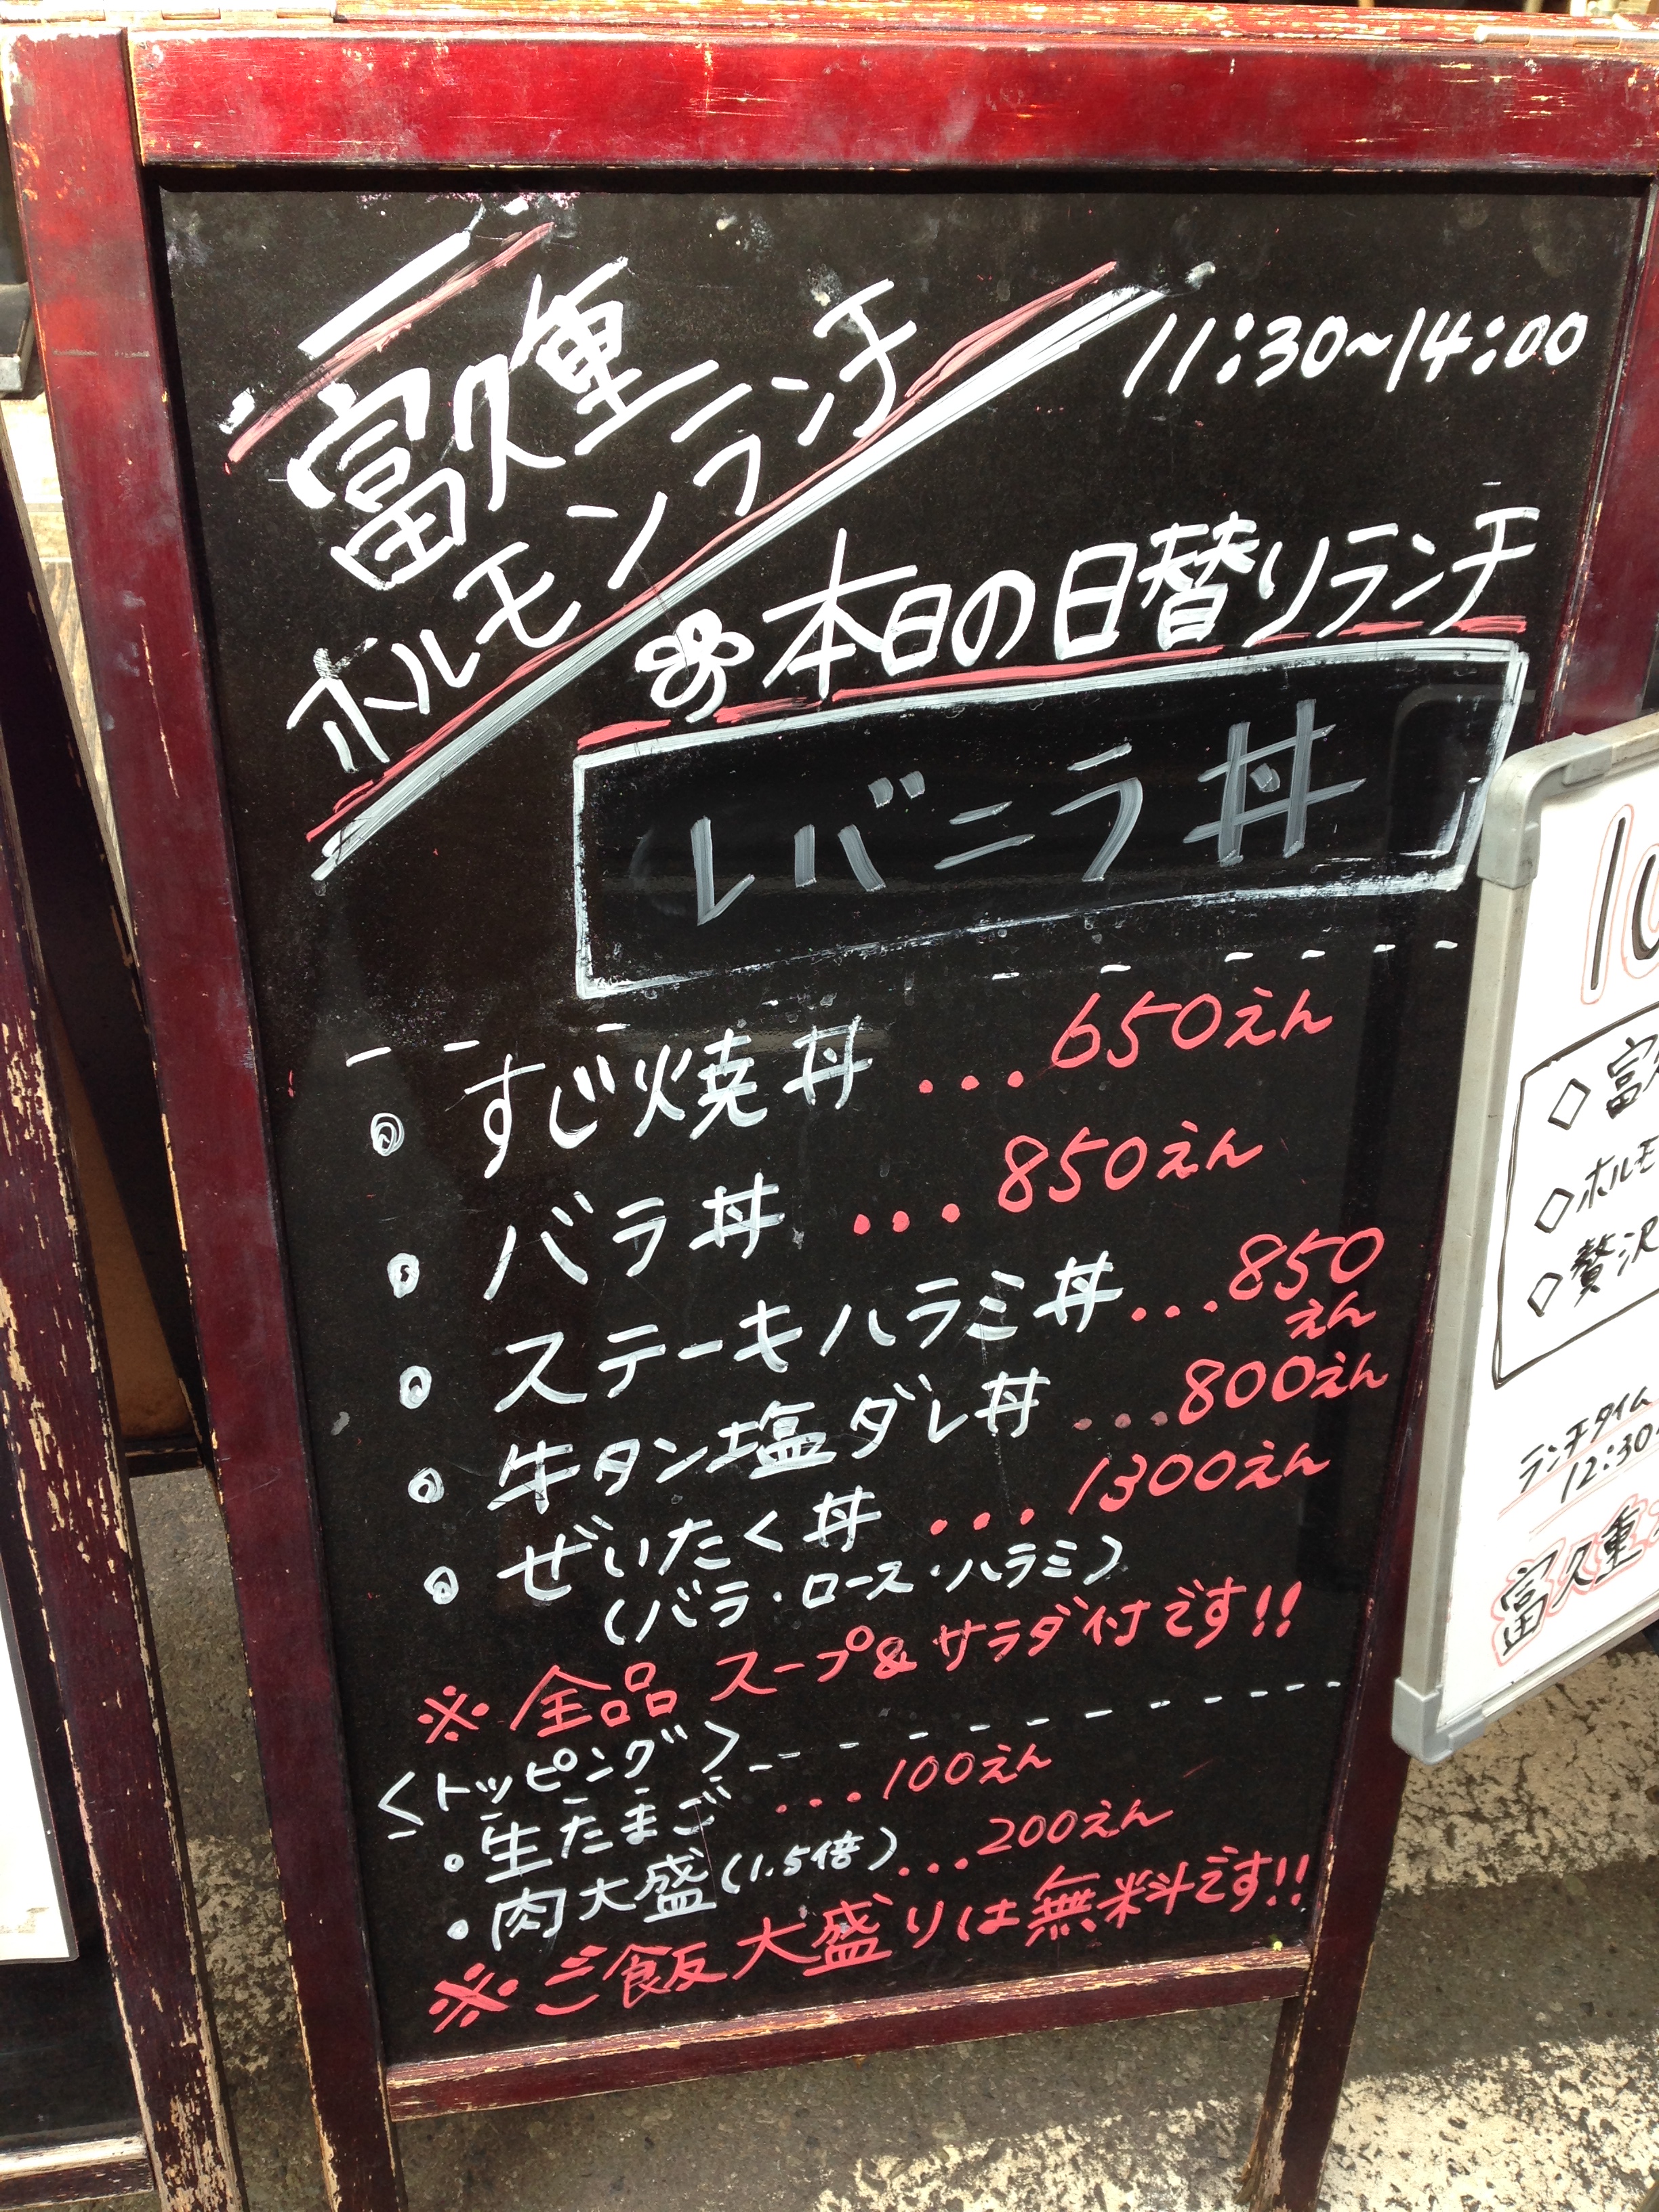 富久重
ホルモンランチ
11:30~14:00
本日の日替りランチ
レバニラ丼
すじ焼丼...650えん
バラ丼...850えん
ステーキハラミ丼...850
えん
牛タン塩ダレ丼...800えん
ぜいたく丼...1300えん
(バラ・ロース・ハラミ)
※全品スープ&サラダ付です!!
<トッピング>
・生たまご...100えん
・肉大盛(1.5倍)...200えん
※ご飯大盛りは無料です!!
◇富久
◇ホルモ
◇贅沢
ランチタイム
12:30~
富久重